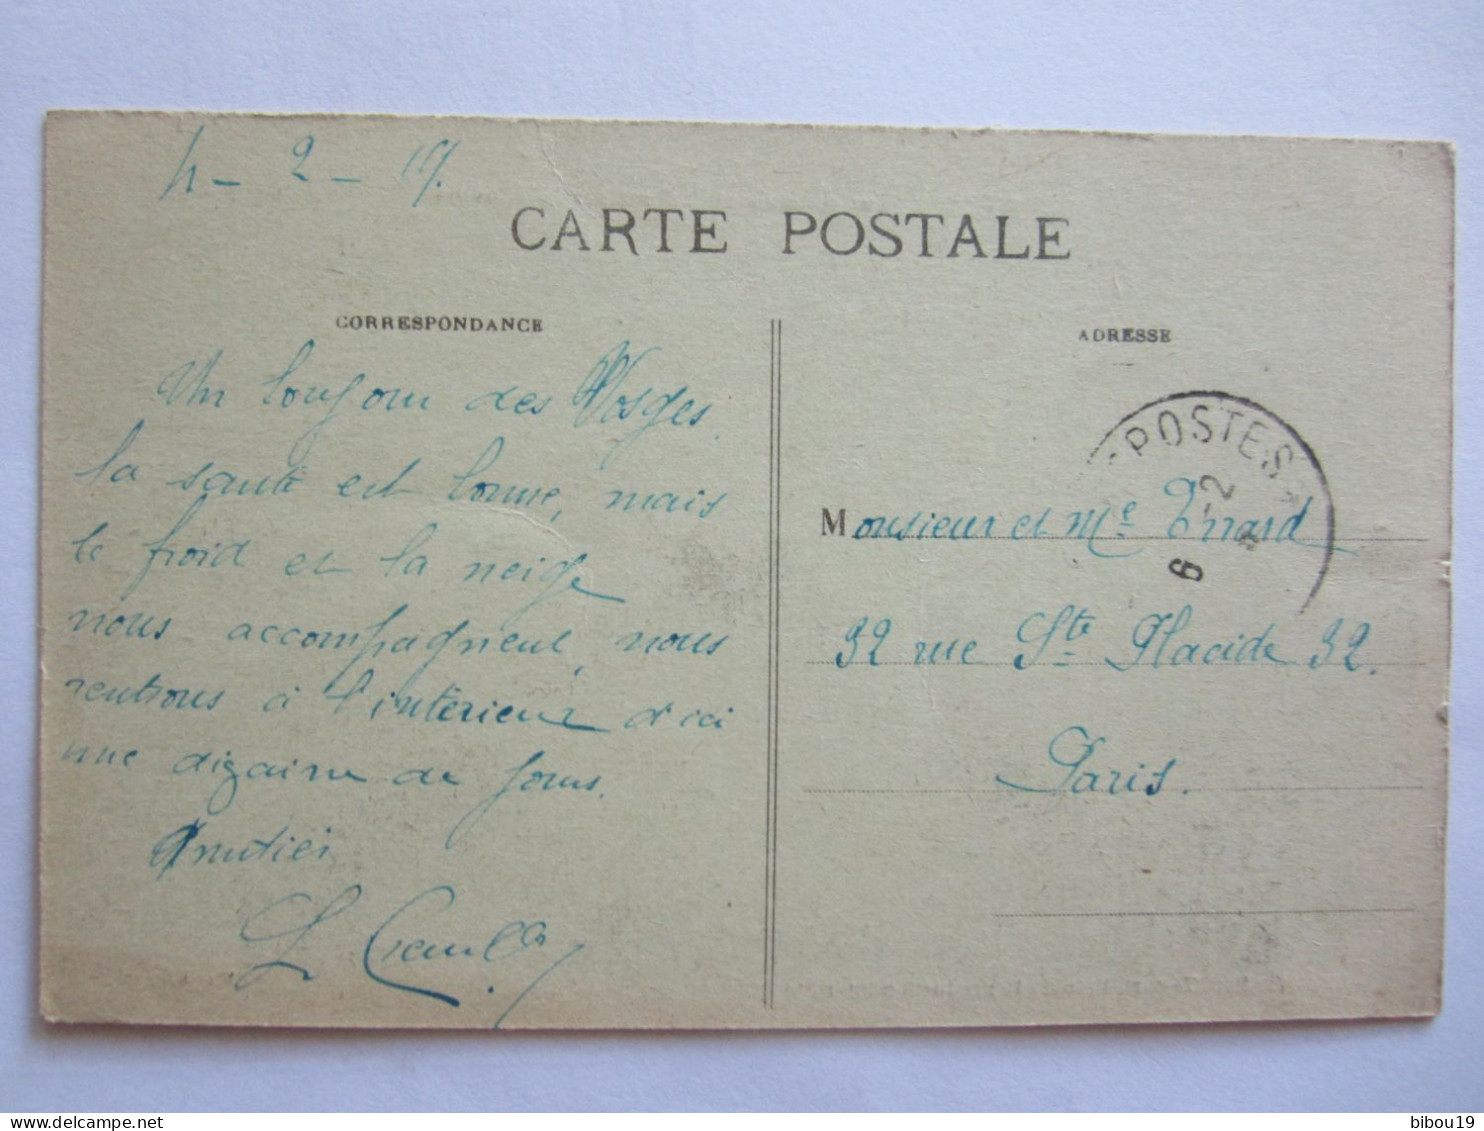 4 - 2 - 19.
CARTE POSTALE
CORRESPONDANCE
Un bonjour des Vosges
la santé est bonne, mais
le froid et la neige
nous accompagnent, nous
rentrons à l'intérieur d'ici
une dizaine de jours.
Amitiés
L.
ADRESSE
POSTES
6 - 2
Monsieur et Me Errard
32 rue Ste Placide 32.
Paris.
bibou19